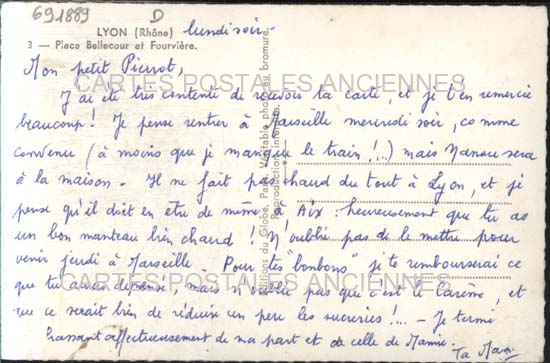 691889 D
LYON (Rhône) lundi soir.
3 — Place Bellecour et Fourvière.
Mon petit Pierrot,
CARTES POSTALES ANCIENNES
J'ai été très contente de recevoir ta carte, et je t'en remercie
beaucoup! Je pense rentrer à Marseille mercredi soir, comme
convenu (à moins que je manque le train!...) mais Nanou sera
à la maison - Il ne fait pas chaud du tout à Lyon, et je
pense qu'il doit en être de même à Aix: heureusement que tu as
un bon manteau bien chaud! N'oublie pas de le mettre pour
venir jeudi à Marseille. Pour tes "bonbons" je te rembourserai ce
CARTES POSTALES ANCIENNES
que tu auras dépensé, mais n'oublie pas que c'est le Carême, et
que ce serait bien de réduire un peu les sucreries!... - Je termine
t'embrassant affectueusement de ma part et de celle de Mamie.
Ta Mam
Editions du Globe, Paris. Véritable photo au bromure.
Reproduction interdite.